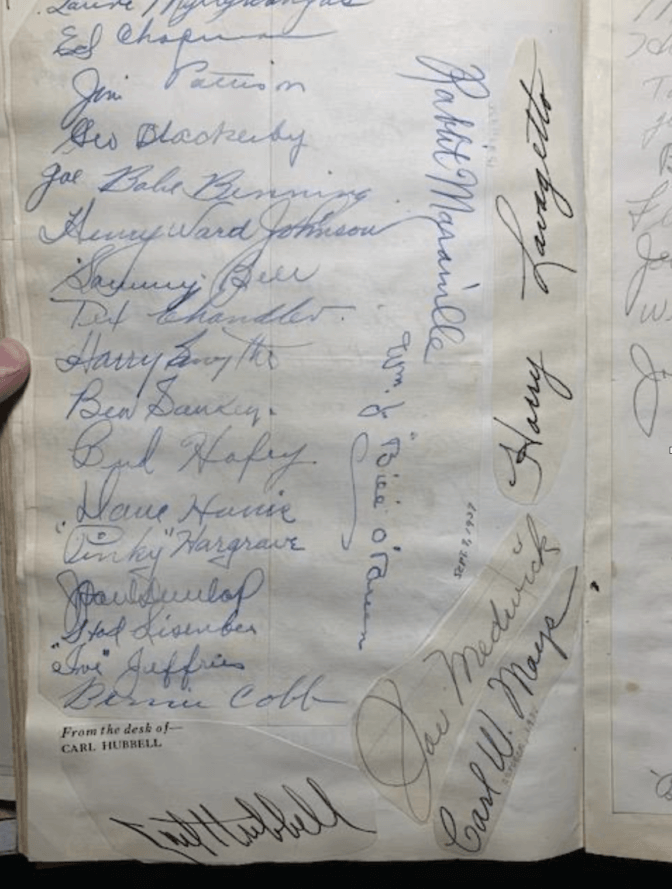 Ed Chapman
Jim Pattison
Geo Blackerby
Joe "Babe" Benning
Henry Ward Johnson
Sammy Bell
Tex Chandler.
Harry Smythe
Ben Sankey.
Bud Hafey
Dave Harris
"Pinky" Hargrave
Paul Dunlap
Stad
"Ive" Jeffries
Bernie Cobb
Rabbit Maranville
Wm. J. "Bill" O'Brien
Harry Lavagetto
SEPT 7, 1937
Joe Medwick
Carl W. Mays
From the desk of—
CARL HUBBELL
Carl Hubbell